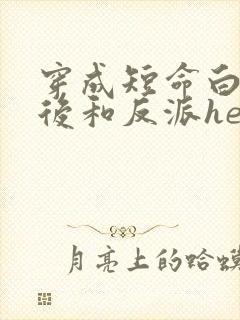 穿成短命白
後和反派he
月亮上的蛤蟆